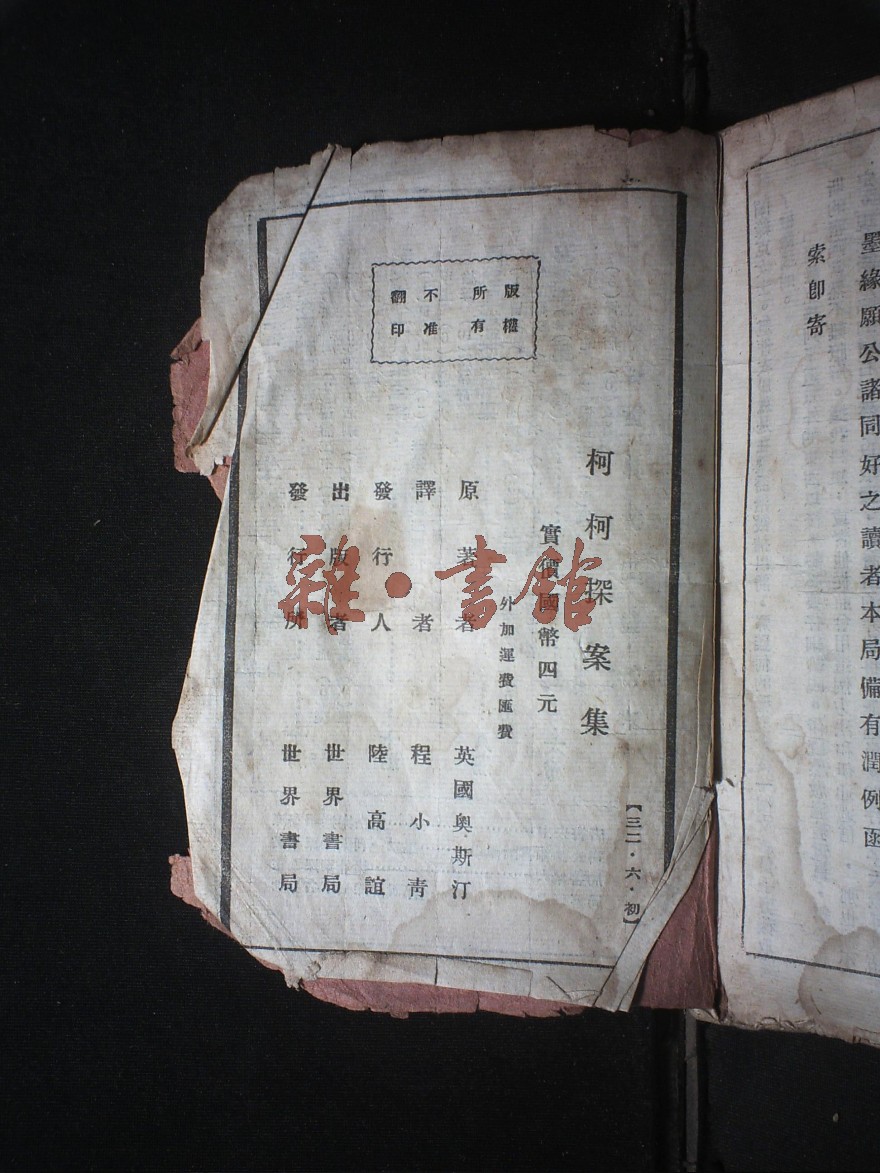 墨緣願公諸同好之讀者本局備有潤例函
索即寄
版權
所有
不准
翻印
【三二·六·初】
柯柯探案集
實價國幣四元
外加運費匯費
原著者 英國奧斯汀
譯者 程小青
發行人 陸高誼
出版者 世界書局
發行所 世界書局
雜·書館